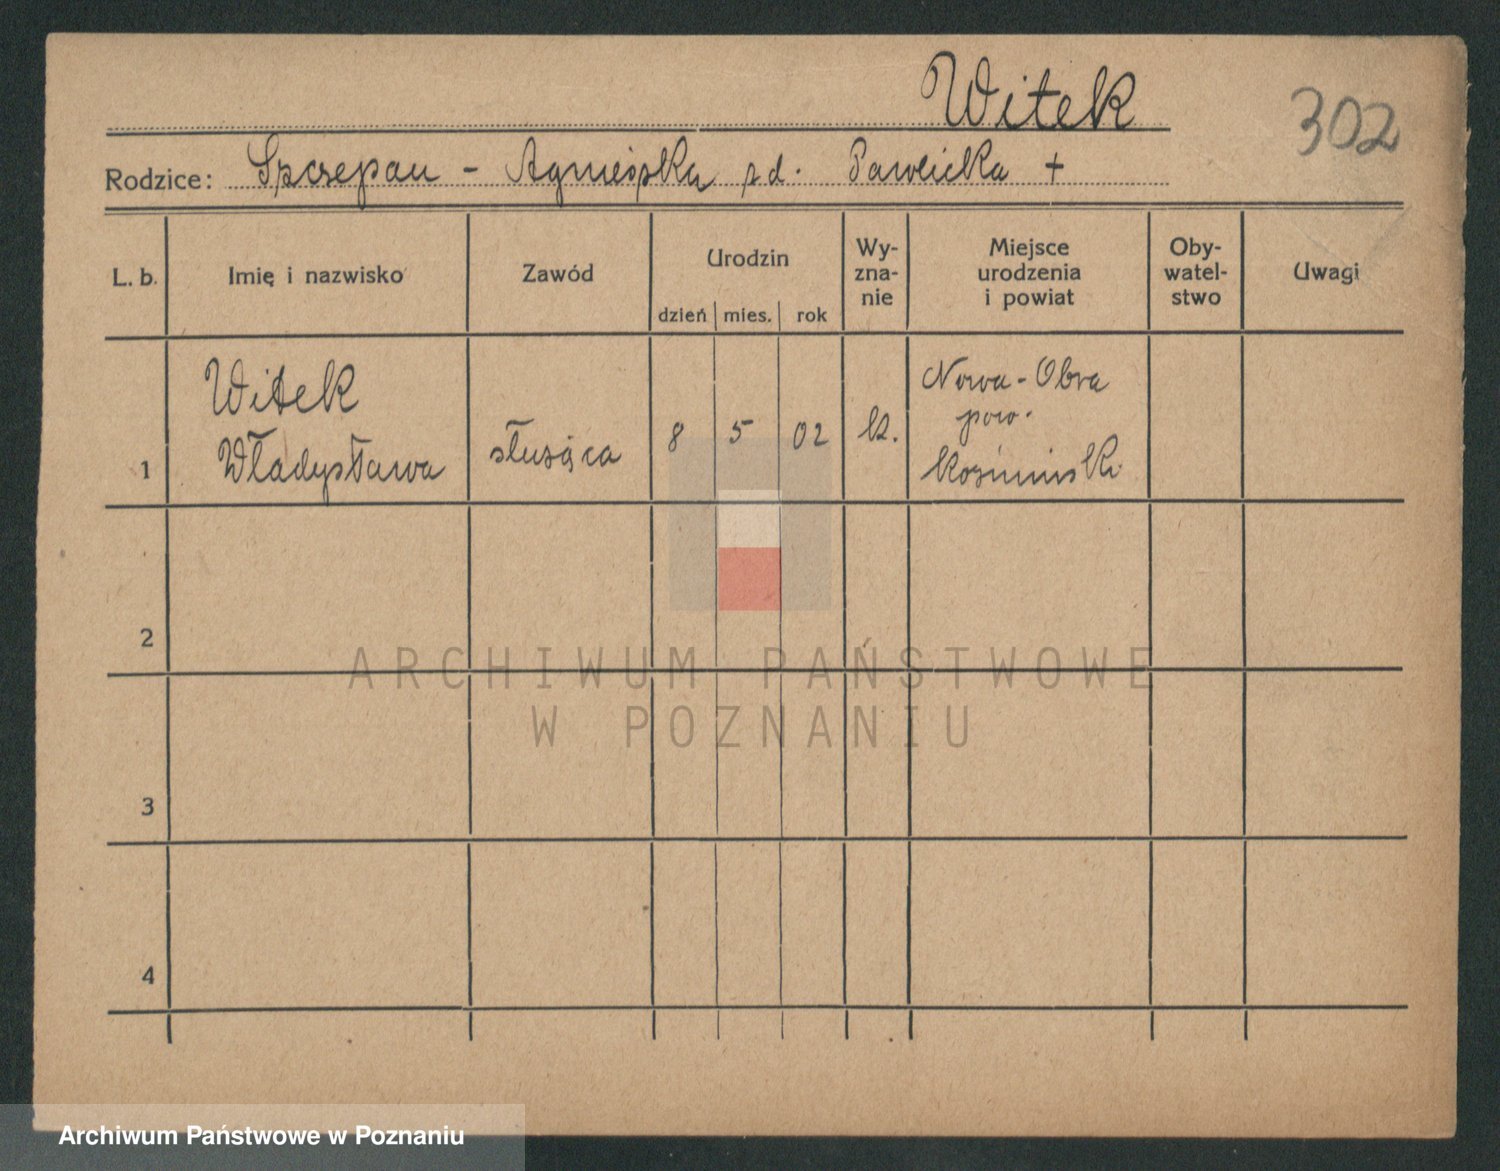 Witek
302
Rodzice: Szczepan - Agnieszka zd. Pawlicka +
L. b.
Imię i nazwisko
Zawód
Urodzin
dzień mies. rok
Wy-
zna-
nie
Miejsce
urodzenia
i powiat
Oby-
watel-
stwo
Uwagi
1
Witek
Władysława
służąca
8 5 02
k.
Nowa-Obra
pow.
Koźmiński
2
3
4
ARCHIWUM PAŃSTWOWE
W POZNANIU
Archiwum Państwowe w Poznaniu